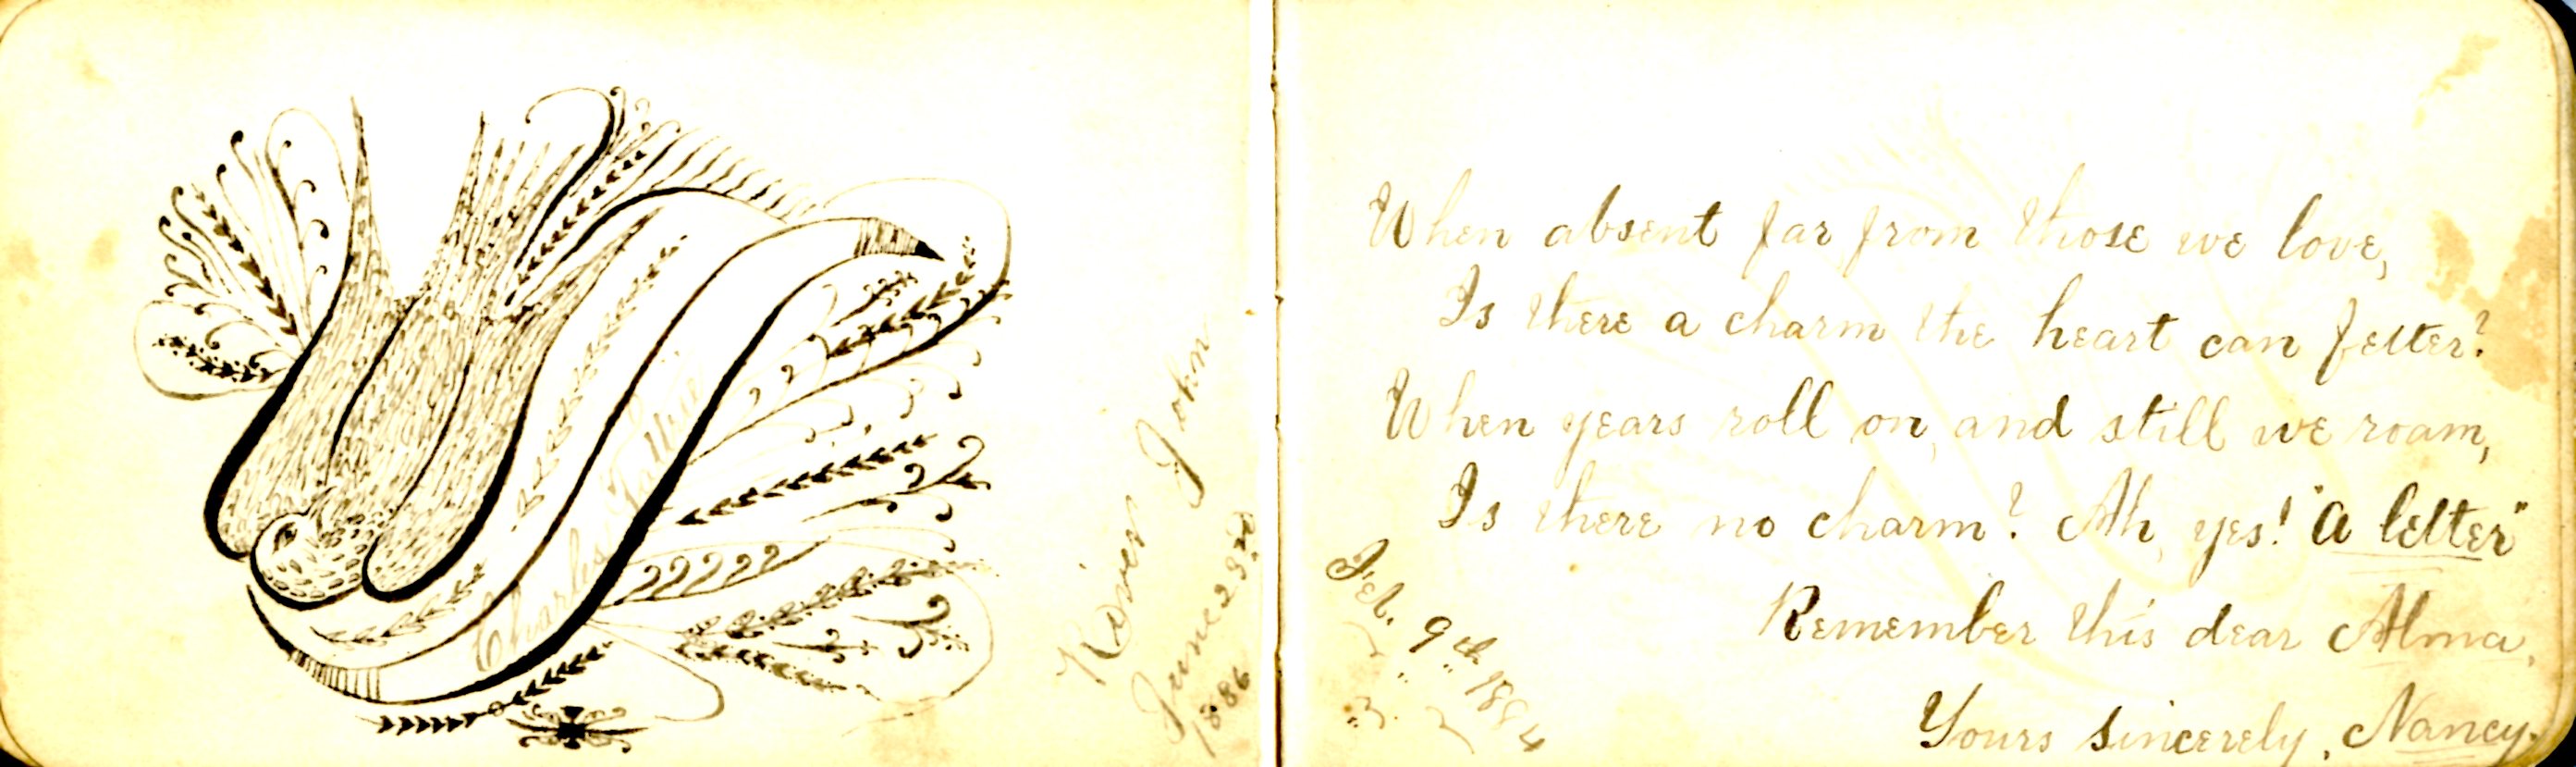 Charles
River John
June 23rd
1886
When absent far from those we love,
Is there a charm the heart can fetter?
When years roll on, and still we roam,
Is there no charm? Ah, yes! "a letter"
Remember this dear Alma.
Yours sincerely, Nancy.
Feb. 9th 1884